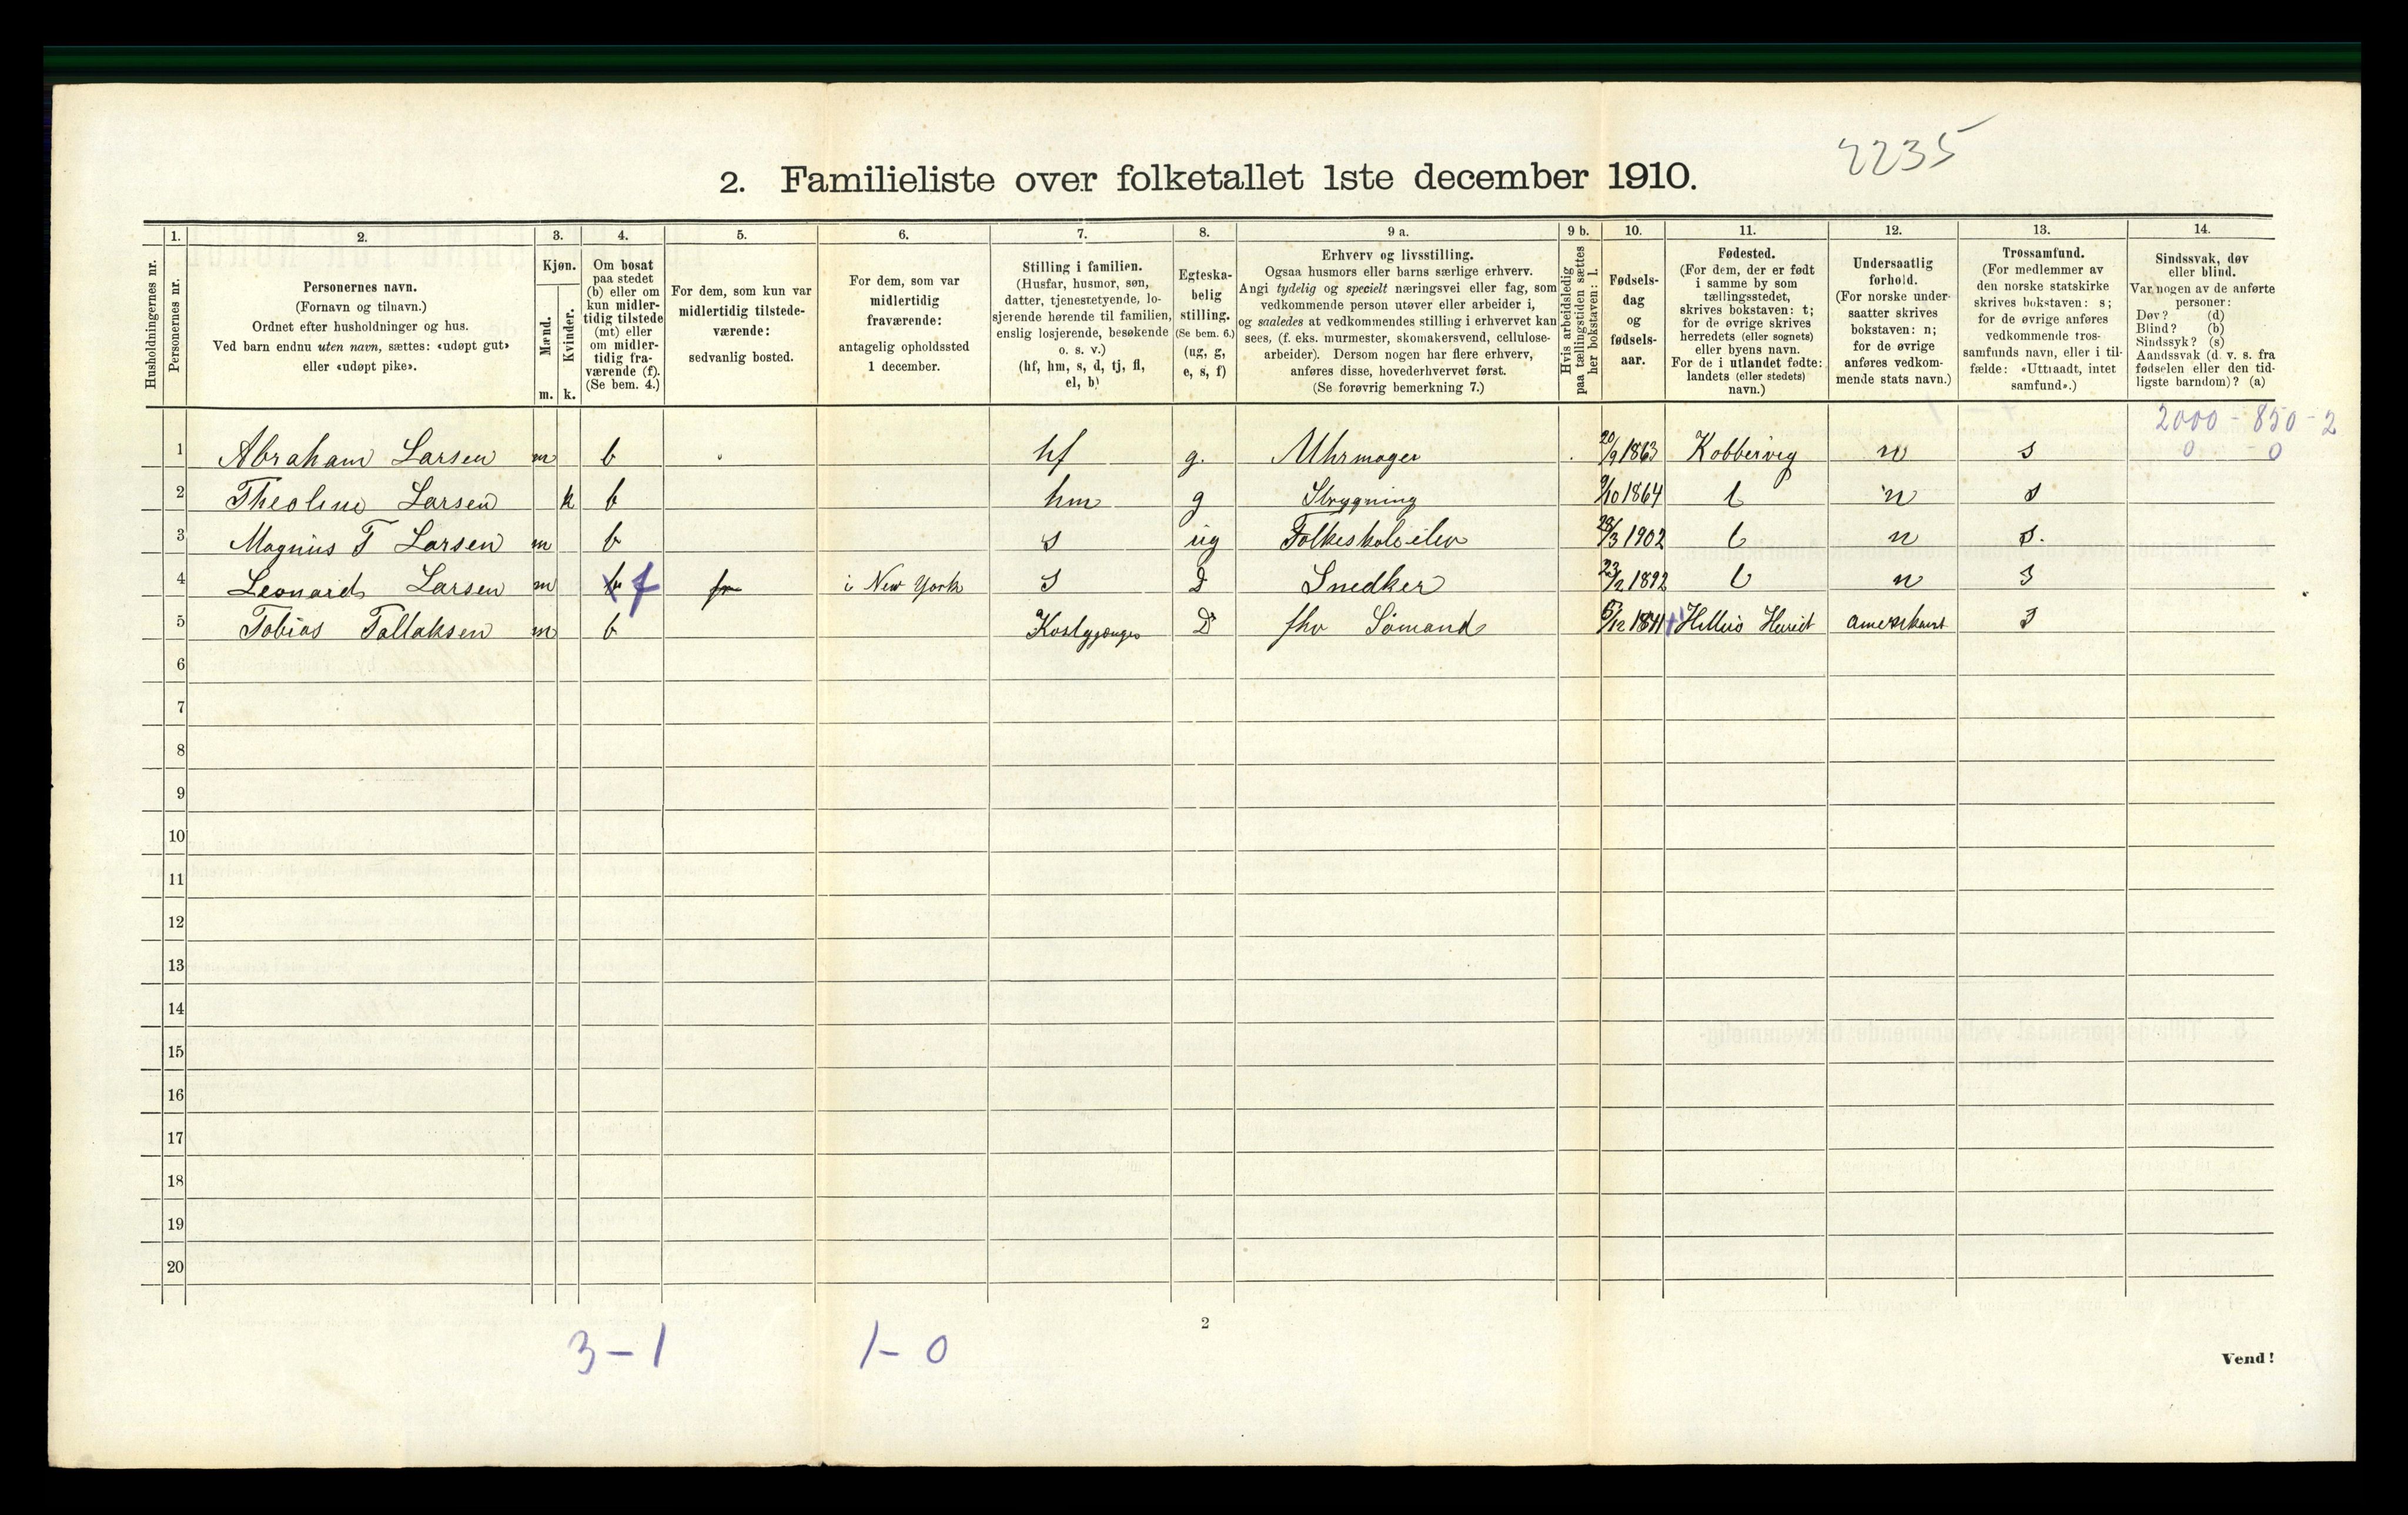 2235
2. Familieliste over folketallet 1ste december 1910.
Husholdningernes nr.
1. Personernes nr.
2. Personernes navn.
(Fornavn og tilnavn.)
Ordnet efter husholdninger og hus.
Ved barn endnu uten navn, sættes: «udøpt gut»
eller «udøpt pike».
3. Kjøn.
Mænd. m.
Kvinder. k.
4. Om bosat
paa stedet
(b) eller om
kun midler-
tidig tilstede
(mt) eller
om midler-
tidig fra-
værende (f).
(Se bem. 4.)
5. For dem, som kun var
midlertidig tilstede-
værende:
sedvanlig bosted.
6. For dem, som var
midlertidig
fraværende:
antagelig opholdssted
1 december.
7. Stilling i familien.
(Husfar, husmor, søn,
datter, tjenestetyende, lo-
sjerende hørende til familien,
enslig losjerende, besøkende
o. s. v.)
(hf, hm, s, d, tj, fl,
el, b)
8. Egteska-
belig
stilling.
(Se bem. 6.)
(ug, g,
e, s, f)
9 a. Erhverv og livsstilling.
Ogsaa husmors eller barns særlige erhverv.
Angi tydelig og specielt næringsvei eller fag, som
vedkommende person utøver eller arbeider i,
og saaledes at vedkommendes stilling i erhvervet kan
sees, (f. eks. murmester, skomakersvend, cellulose-
arbeider). Dersom nogen har flere erhverv,
anføres disse, hovederhvervet først.
(Se forøvrig bemerkning 7.)
9 b. Hvis arbeidsledig
paa tællingstiden sættes
her bokstaven: l.
10. Fødsels-
dag
og
fødsels-
aar.
11. Fødested.
(For dem, der er født
i samme by som
tællingsstedet,
skrives bokstaven: t;
for de øvrige skrives
herredets (eller sognets)
eller byens navn.
For de i utlandet fødte:
landets (eller stedets)
navn.)
12. Undersaatlig
forhold.
(For norske under-
saatter skrives
bokstaven: n;
for de øvrige
anføres vedkom-
mende stats navn.)
13. Trossamfund.
(For medlemmer av
den norske statskirke
skrives bokstaven: s;
for de øvrige anføres
vedkommende tros-
samfunds navn, eller i til-
fælde: «Uttraadt, intet
samfund».)
14. Sindssvak, døv
eller blind.
Var nogen av de anførte
personer:
Døv? (d)
Blind? (b)
Sindssyk? (s)
Aandssvak (d. v. s. fra
fødselen eller den tid-
ligste barndom)? (a)
2000 - 850 - 2
0 - 0
1 Abraham Larsen m b hf g. Uhrmager 20/9 1863 Kobbervig n s
2 Theoline Larsen k b hm g Strygning 9/10 1864 t n s
3 Magnus T Larsen m b s ug Folkeskole elev 28/3 1902 t n s.
4 Leonard Larsen m b f i New York s Snedker 23/2 1892 t n s
5 Tobias Tallaksen m b Kostgjænger fhv Sømand 1841 s
6
7
8
9
10
11
12
13
14
15
16
17
18
19
20
3 - 1 1 - 0
2
Vend!